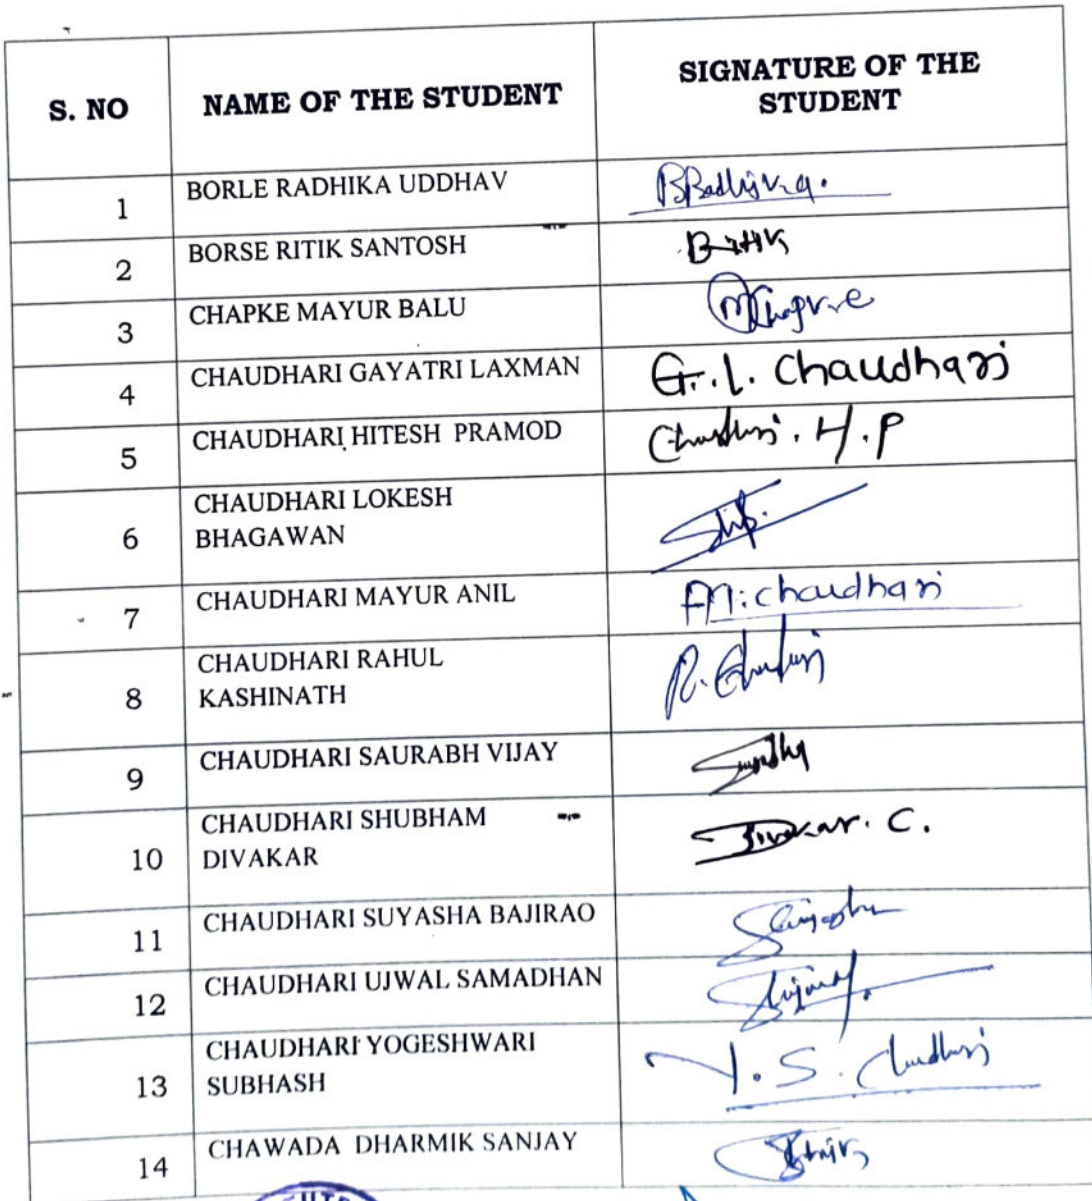 S. NO
NAME OF THE STUDENT
SIGNATURE OF THE
STUDENT
1
BORLE RADHIKA UDDHAV
2
BORSE RITIK SANTOSH
3
CHAPKE MAYUR BALU
4
CHAUDHARI GAYATRI LAXMAN
G.L. Chaudhari
5
CHAUDHARI HITESH PRAMOD
Chaudhari. H.P
6
CHAUDHARI LOKESH
BHAGAWAN
7
CHAUDHARI MAYUR ANIL
chaudhari
8
CHAUDHARI RAHUL
KASHINATH
9
CHAUDHARI SAURABH VIJAY
10
CHAUDHARI SHUBHAM
DIVAKAR
Divakar. C.
11
CHAUDHARI SUYASHA BAJIRAO
12
CHAUDHARI UJWAL SAMADHAN
13
CHAUDHARI YOGESHWARI
SUBHASH
Y. S. Chaudhari
14
CHAWADA DHARMIK SANJAY